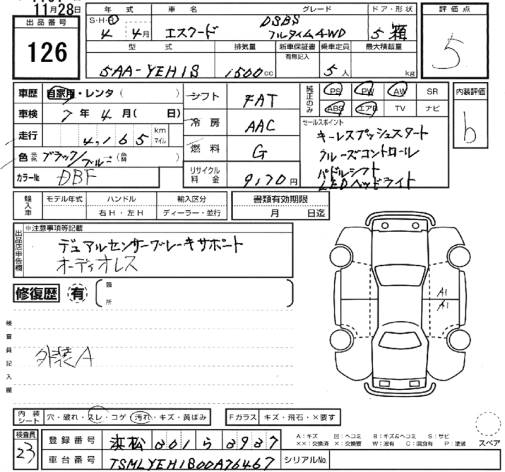 11月28日
出品番号
126
年式 車名 グレード ドア・形状 評価点
S・H・R
4年4月 エスクード DSBS フルタイム4WD 5 箱 5
型式 排気量 新車保証書 乗車定員 最大積載量
有無記入
5AA-YEH1S 1500cc 5人 kg
車歴 自家用・レンタ( )
シフト FAT
純正のみ PS PW AW SR 内装評価
ABS エアB TV ナビ
b
車検 7年4月( 日)
冷房 AAC
セールスポイント
キーレスプッシュスタート
走行 4,165 km マイル
クルーズコントロール
燃料 G
パドルシフト
色 ブラック/ブルー
LEDヘッドライト
カラーNo DBF
リサイクル料金 9,170円
輸入車 モデル年式 ハンドル 輸入区分 書類有効期限
右H・左H ディーラー・並行 月 日迄
出品店申告欄
※注意事項等記載
デュアルセンサーブレーキサポート
オーディオレス
修復歴 有 箇所
A1
A1
検査員記入欄
外装A
内装シート 穴・破れ・スレ・コゲ・汚れ・キズ・黄ばみ Fガラス キズ・飛石・×要す
スペア
検査員
23
登録番号 浜松 301 ら 3937
A:キズ
××:交換済 X:交換要 P:塗装
車台番号 TSMLYEH1S00A76467 シリアルNo.